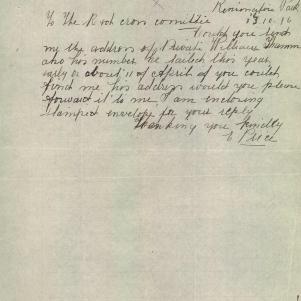 Kensington Park
13.10.16
To The Red cross comittie
Would you send
my the address of Private William
and his number he sailed this year,
early or about 11 of April if you could
find me his address would you please
forward it to me I am enclosing
stamped envelope for your reply
Thanking you kindly